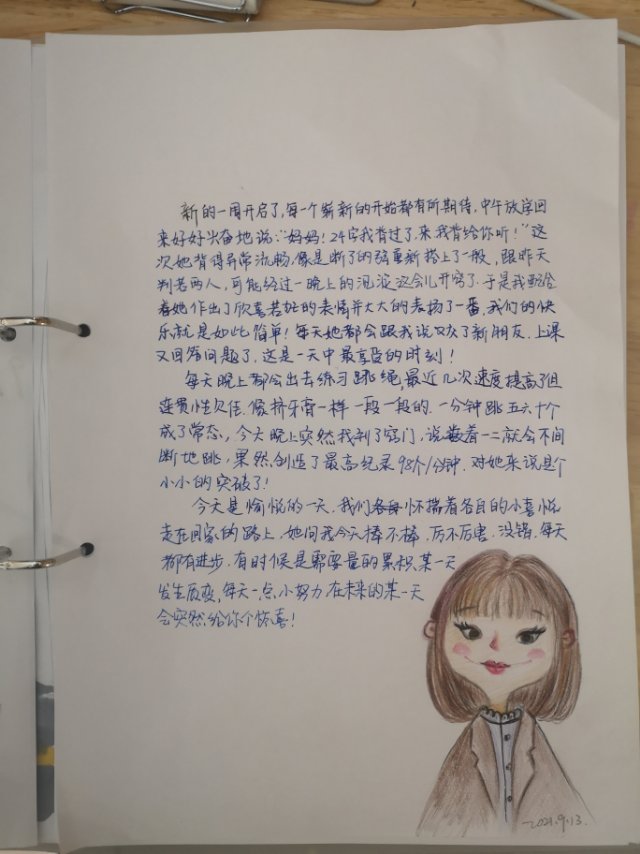 新的一周开启了,每一个崭新的开始都有所期待.中午放学回
来好好兴奋地说:"妈妈!24字我背过了,来我背给你听!"这
次她背得异常流畅,像是断了的弦重新搭上了一般,跟昨天
判若两人,可能经过一晚上的沉淀这会儿开窍了.于是我配合
着她作出了欣喜若狂的表情并大大的表扬了一番,我们的快
乐就是如此简单!每天她都会跟我说又交了新朋友,上课
又回答问题了,这是一天中最享受的时刻!
每天晚上都会出去练习跳绳,最近几次速度提高了但
连贯性欠佳.像挤牙膏一样一段一段的.一分钟跳五六十个
成了常态,今天晚上突然找到了窍门,说数着一二就会不间
断地跳,果然,创造了最高纪录98个/分钟.对她来说是个
小小的突破了!
今天是愉悦的一天,我们怀揣着各自的小喜悦
走在回家的路上,她问我今天棒不棒,厉不厉害,没错,每天
都有进步,有时候是需要量的累积,某一天
发生质变,每天一点小努力在未来的某一天
会突然给你个惊喜!
—2021.9.13.